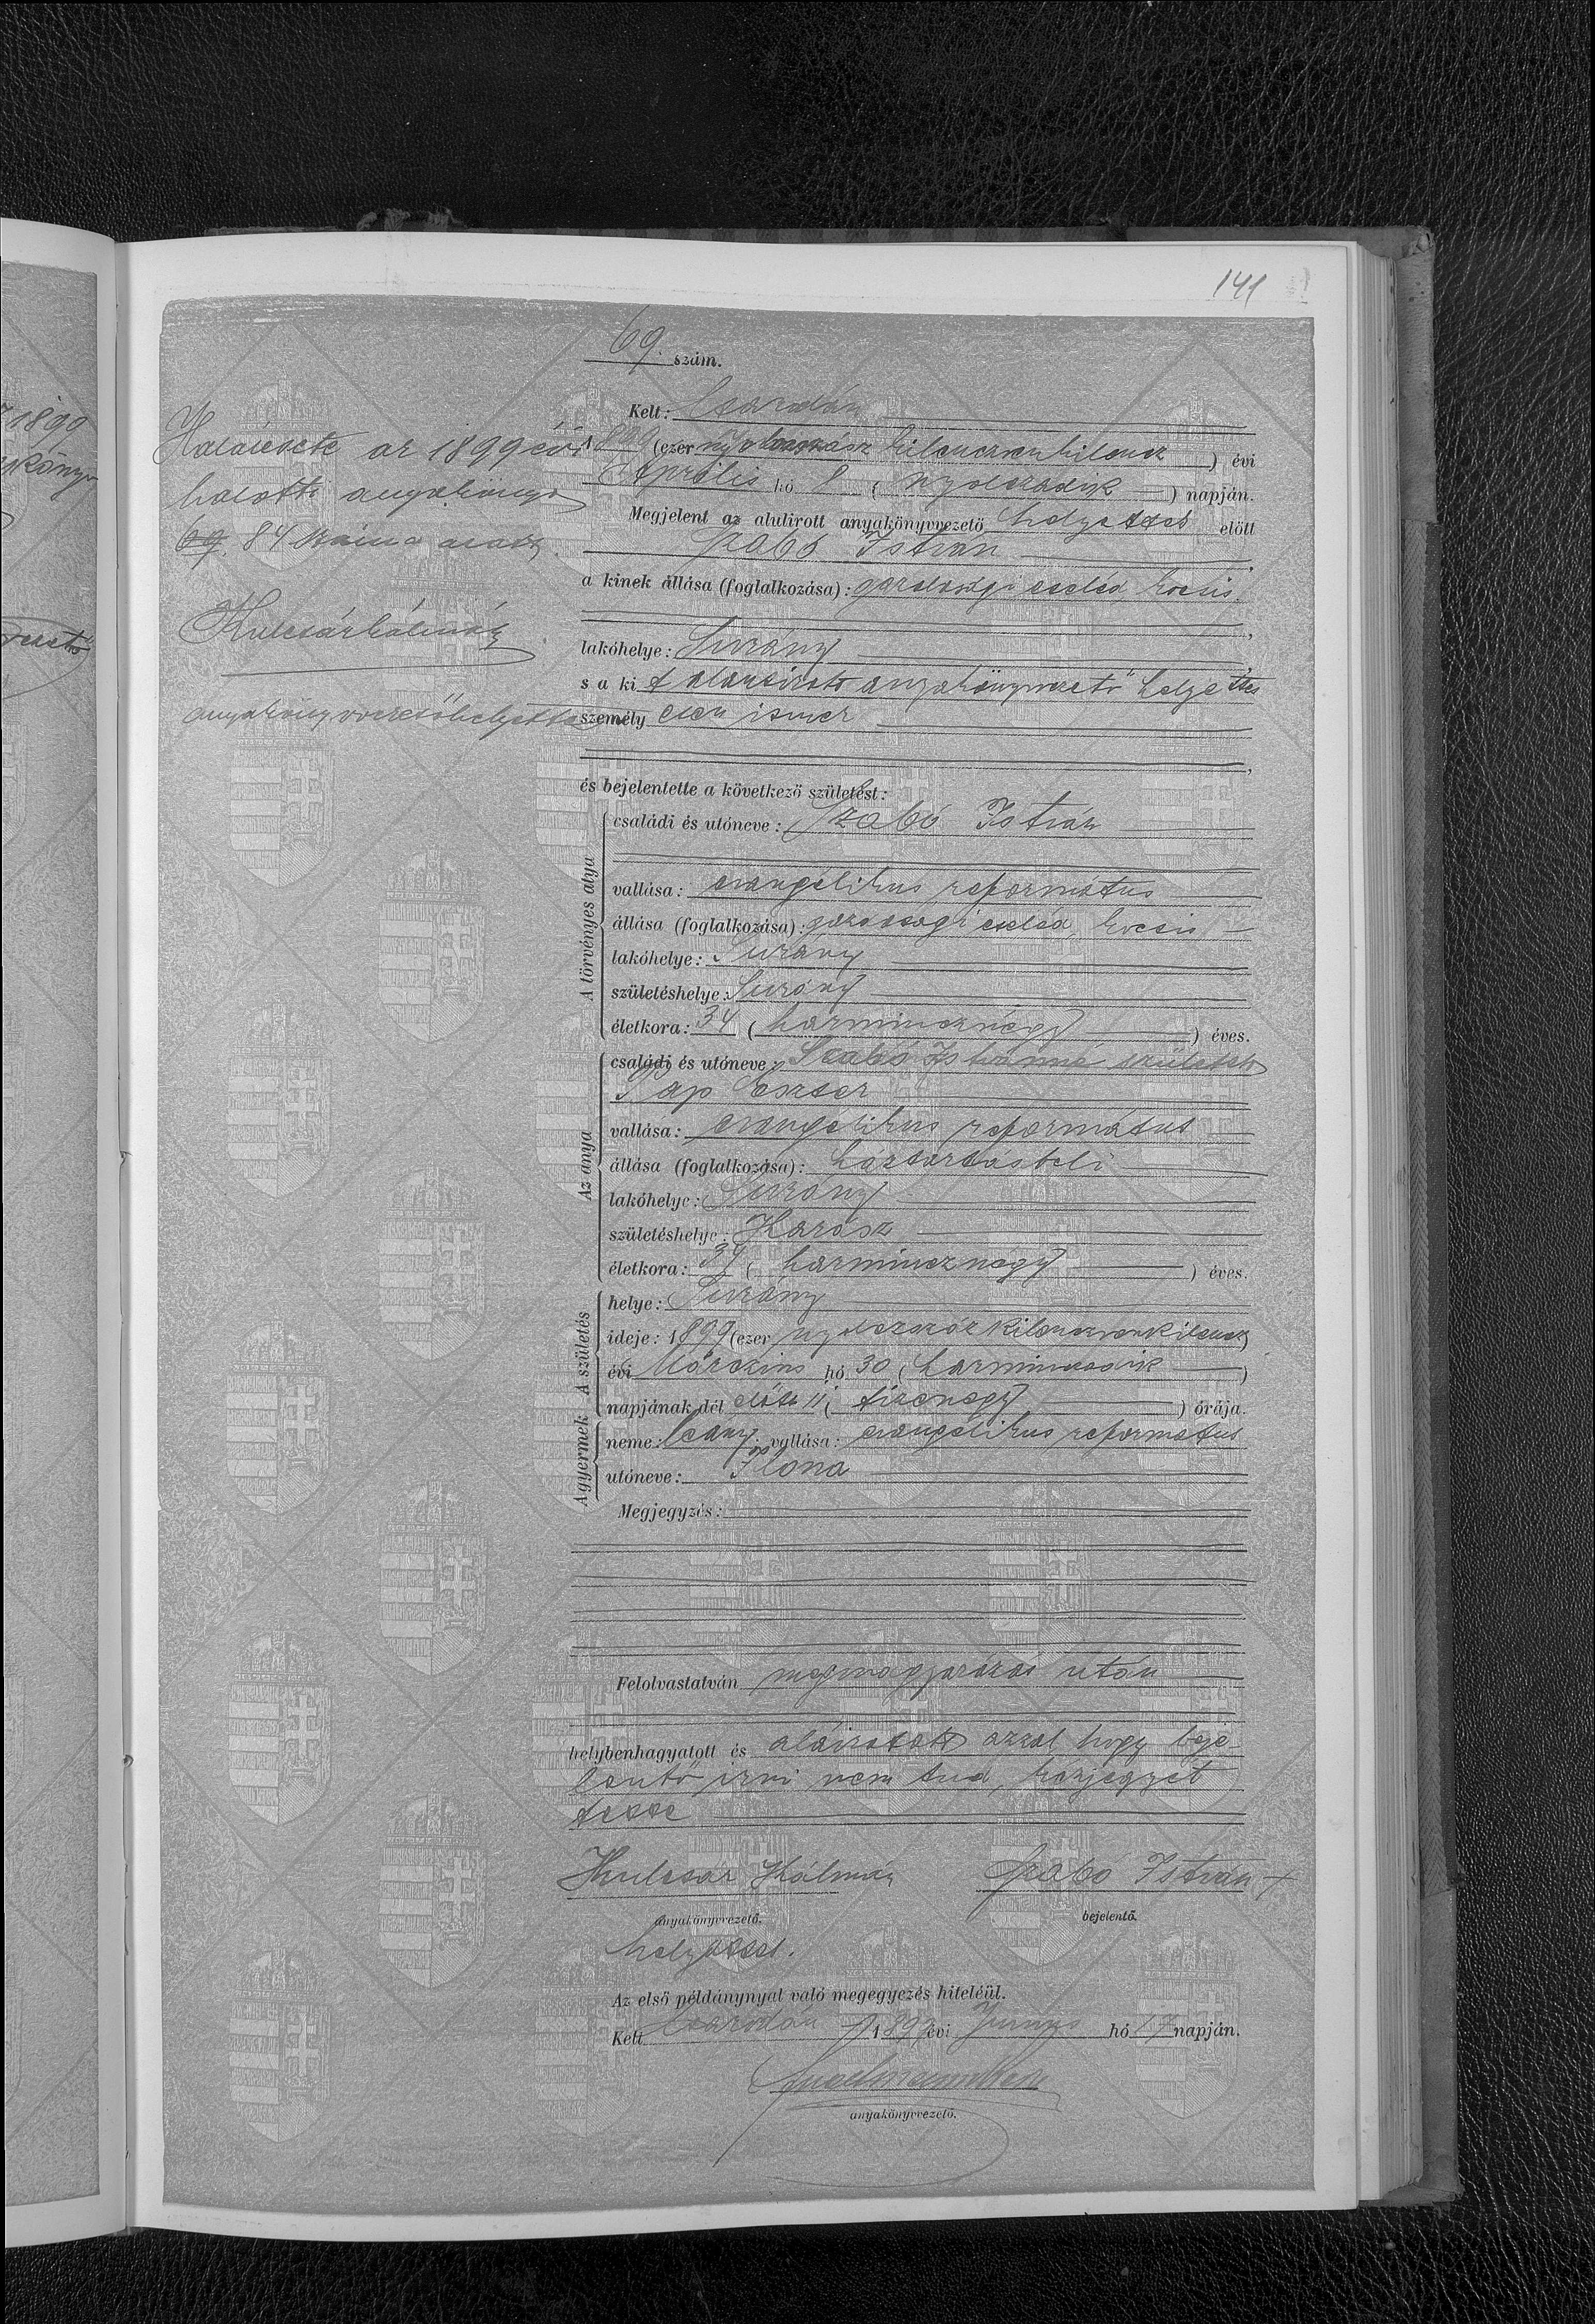 141
69. szám.
Kelt: Csarodán
1899 (ezer nyolcszász kilenczvenkilencz) évi
Április hó 8 (nyolczadik) napján.
Megjelent az alulirott anyakönyvvezető helyettes előtt
Szabó István
a kinek állása (foglalkozása): gazdasági cseléd, kocsis,
lakóhelye: Surány
s a ki t alantirott anyakönyvvezető helyettes
személy esen ismer
és bejelentette a következő születést:
A törvényes atya
családi és utóneve: Szabó István
vallása: evangelikus református
állása (foglalkozása): gazdasági cseléd, kocsis
lakóhelye: Surány
születéshelye: Surány
életkora: 34 (harmincznégy) éves.
Az anya
családi és utóneve: Szabó Istvánné született
Pap Eszter
vallása: evangelikus református
állása (foglalkozása): háztartásbeli
lakóhelye: Surány
születéshelye: Karász
életkora: 34 (harmincznégy) éves.
A születés
helye: Surány
ideje: 1899 (ezer nyolczszáz kilenczvenkilencz)
évi Márczius hó 30 (harminczadik)
napjának dél előtt 11 (tizenegy) órája.
A gyermek
neme: leány; vallása: evangelikus református
utóneve: Ilona
Megjegyzés:
Felolvastatván megmagyarázás után
helybenhagyatott és aláiratott azzal hogy beje-
lentő irni nem tud, kézjegyét
tette
Kulcsár Kálmán Szabó István +
anyakönyvvezető. bejelentő.
helyettes.
Az első példánynyal való megegyezés hiteléül.
Kelt Csarodán 1899 évi Junius hó 17 napján.
anyakönyvvezető.
Halálesete az 1899 évi
halotti anyakönyv
69. 84 száma alatt.
Kulcsár Kálmán
anyakönyvvezetőhelyettes
1899